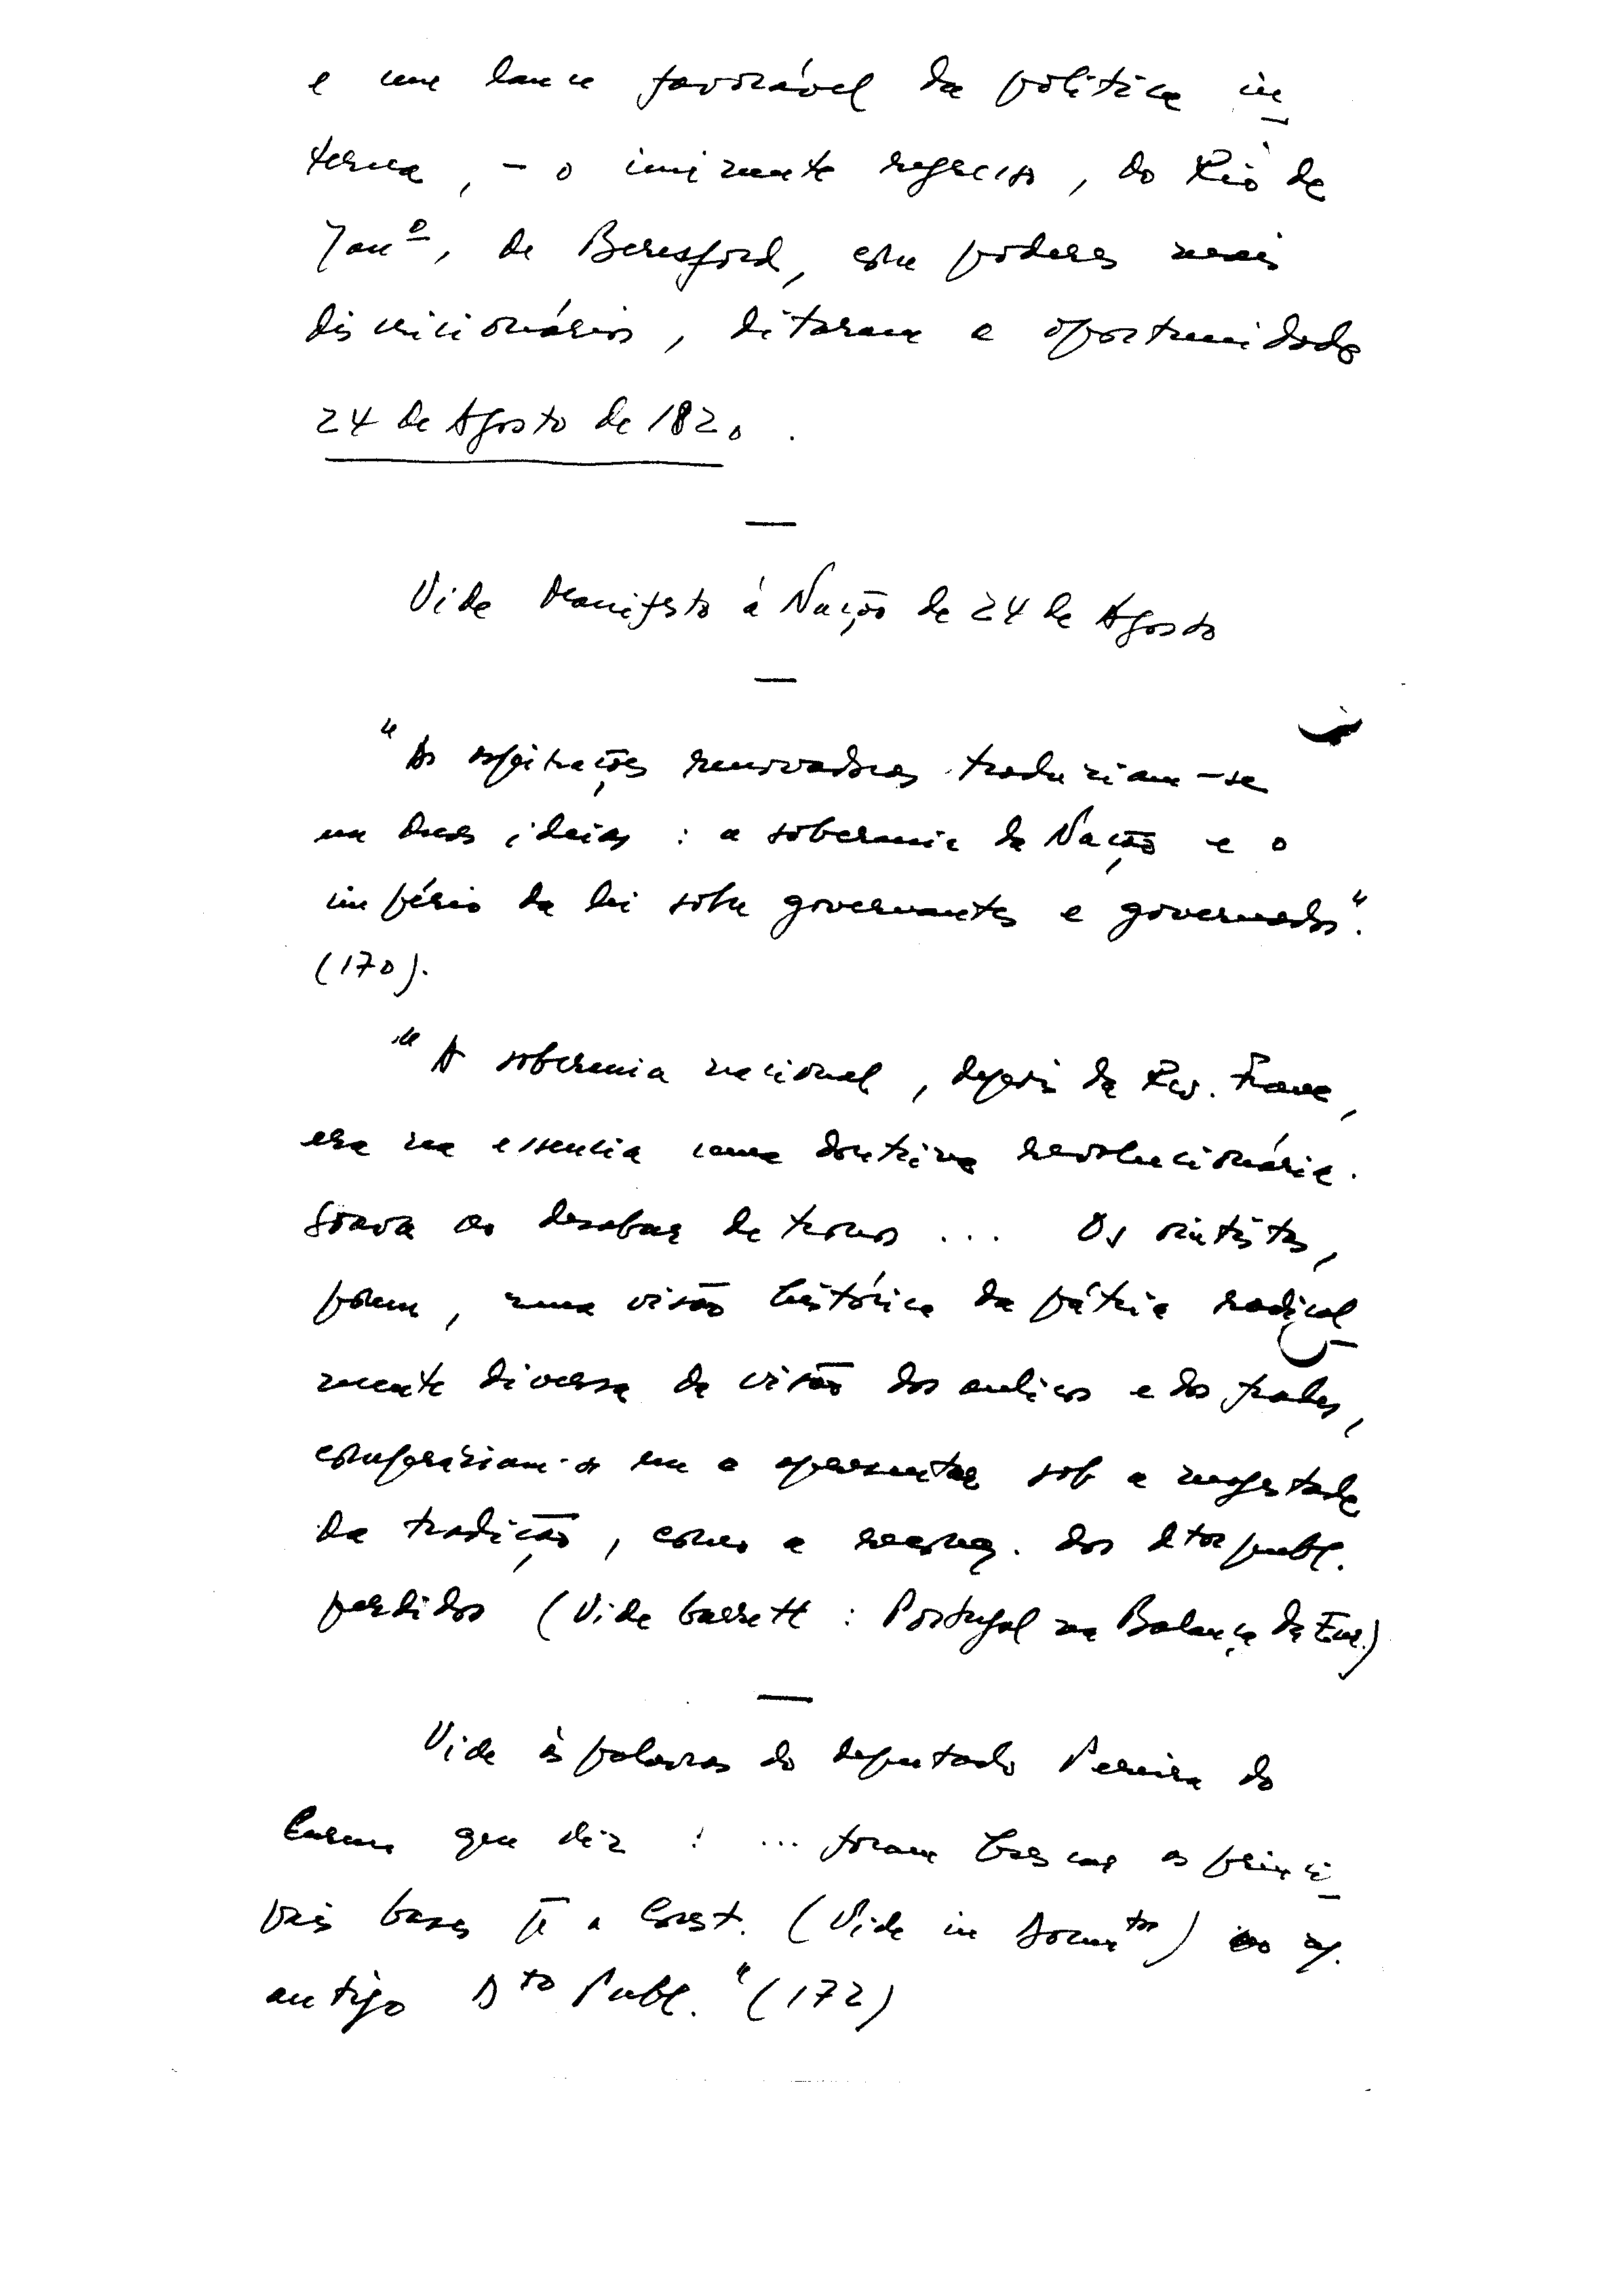 e um lance favorável da política in
terna, – o iminente regresso, do Rio de
Janº, de Beresford, com poderes mais
discricionários, ditaram a oportunidade
24 de Agosto de 1820.
—
Vide Manifesto à Nação de 24 de Agosto
—
"As aspirações renovadoras traduziam-se
em duas ideias : a soberania da Nação e o
império da lei sobre governantes e governados".
(170).
"A soberania nacional, depois da Rev. Franc,
era na essencia uma doutrina revolucionária.
Soava ao desabar de tronos ... Os vintistas,
porem, numa visão histórica da pátria radical
mente diversa da visão dos aulicos e dos frades,
compraziam-se em a apresentar sob a magestade
da tradição, como a dos dtos publ.
perdidos (Vide Garrett : Portugal na Balança da Eur.)
—
Vide as palavras do deputado Pereira do
Carmo que diz : ... foram buscar as princi
pais bases pª a Const. (Vide in Documtos) ao n/.
antigo Dto Publ." (172)